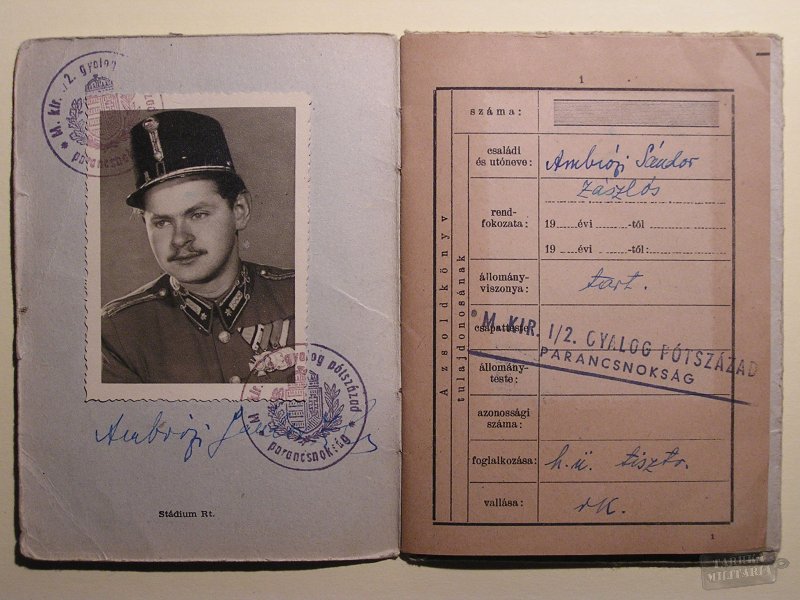 * M. kir. 1/2. gyalog
parancsnokság
M. kir. 1/2. gyalog pótszázad
* parancsnokság *
Ambrózi Sándor
Stádium Rt.
1
A zsoldkönyv
tulajdonosának
száma:
családi
és utóneve: Ambrózi Sándor
zászlós
rend-
fokozata: 19 évi -tól
19 évi -tól:
állomány-
viszonya: tart.
csapatteste:
M. KIR. 1/2. GYALOG PÓTSZÁZAD
PARANCSNOKSÁG
állomány-
teste:
azonossági
száma:
foglalkozása: h.ü. tisztv.
vallása: rk.
1
TABÉKO
MILITARIA